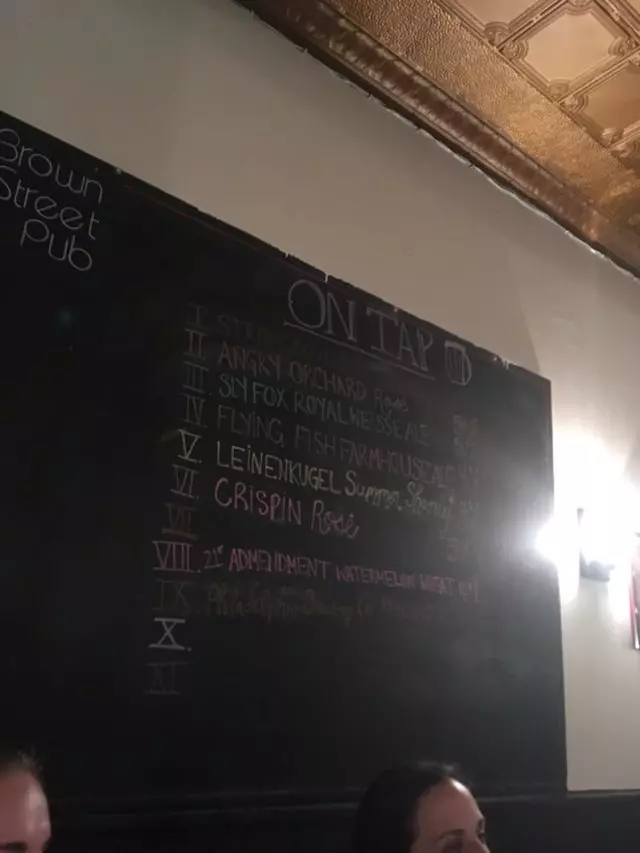 Brown
Street
Pub
ON TAP
I.
II. ANGRY ORCHARD Rosé
III. SLY FOX ROYAL WEISSE ALE
IV. FLYING FISH FARMHOUSE ALE
V. LEINENKUGEL Summer Shandy
VI. CRISPIN Rosé
VII.
VIII. 21st ADMENDMENT WATERMELON WHEAT
IX. Philadelphia Brewing Co.
X.
XI